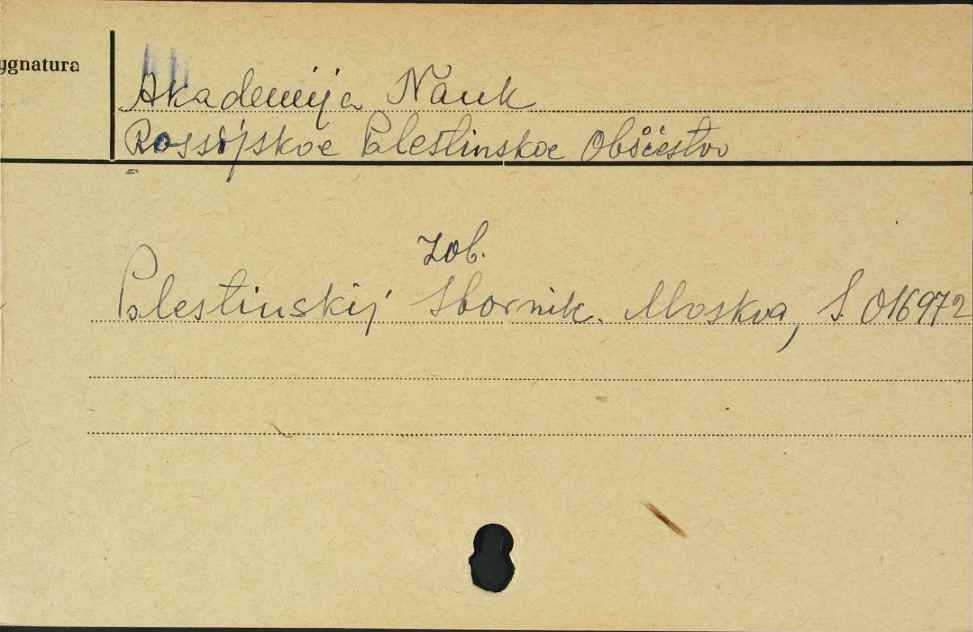 ygnatura
Akademija Nauk
Rossijskoe Palestinskoe Obščestvo
Zob.
Palestinskij Sbornik. Moskva, S. 016972